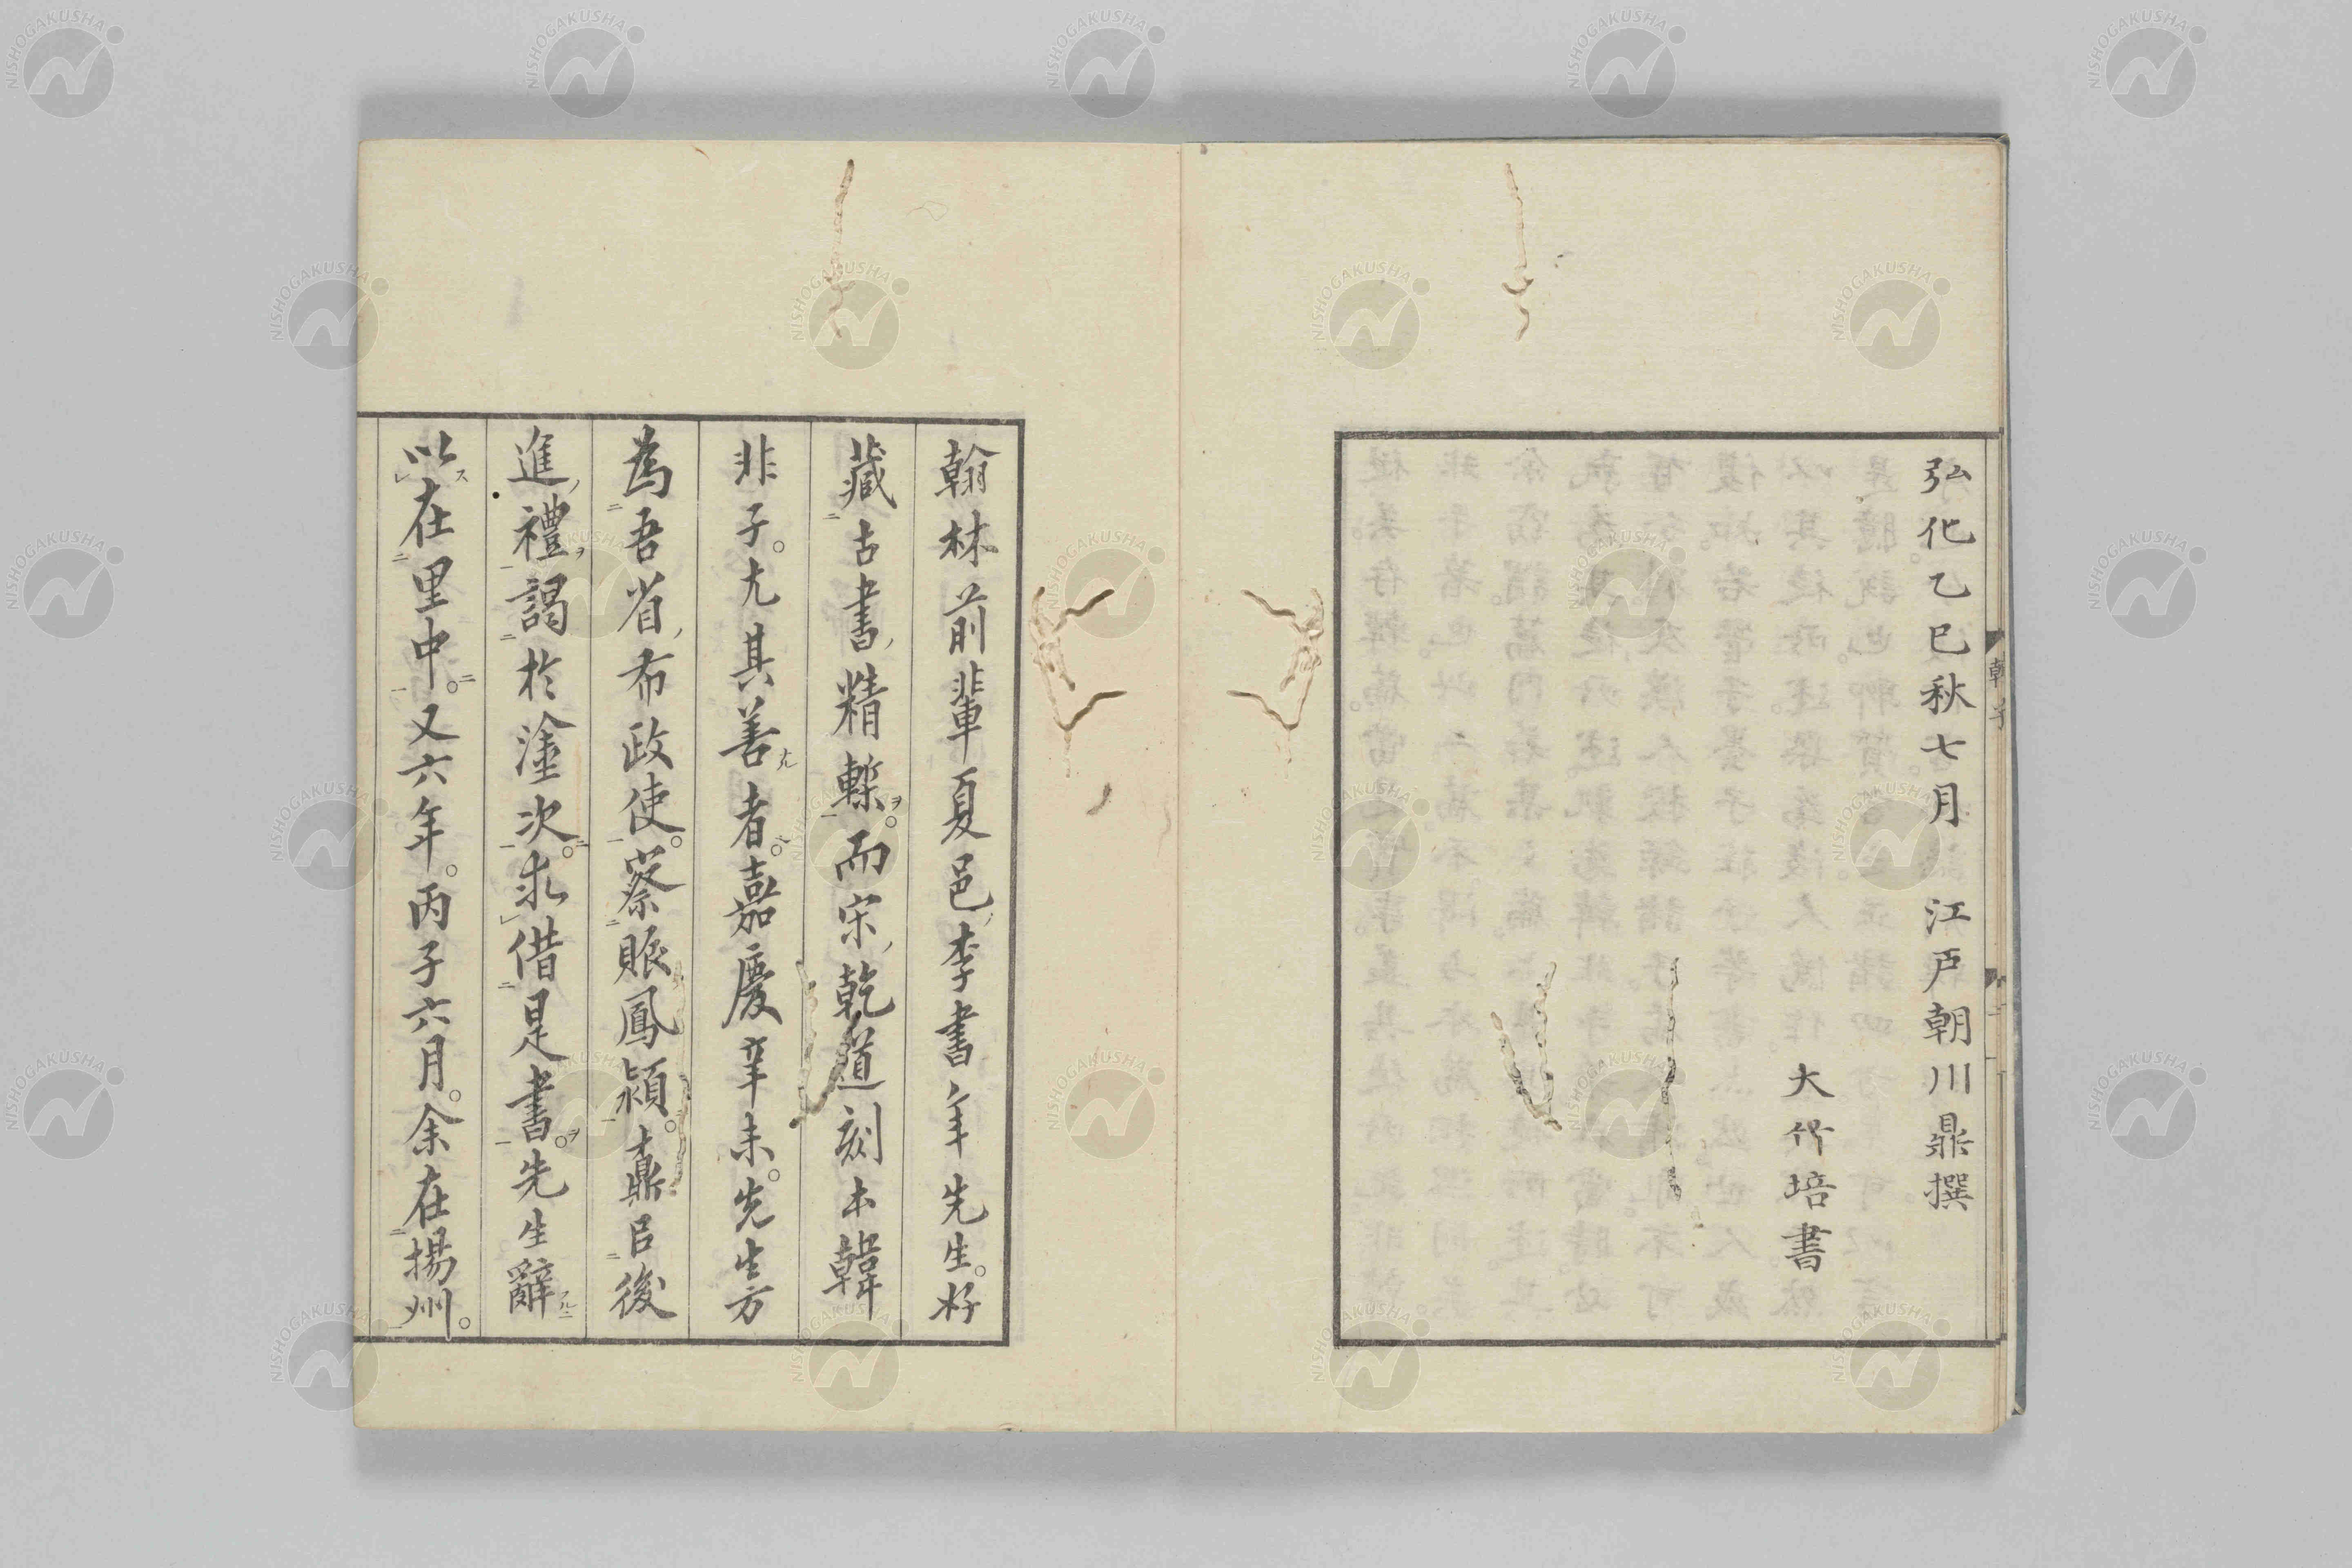 弘化乙巳秋七月 江戸朝川鼎撰
大竹培書
翰林前輩夏邑李書年先生好
藏古書精槧而宋乾道刻本韓
非子尤其善者嘉慶辛未先生方
為吾省布政使察賑鳳潁鼒㠯後
進禮謁於塗次求借是書先生辭
以在里中又六年丙子六月余在揚州
NISHOGAKUSHA